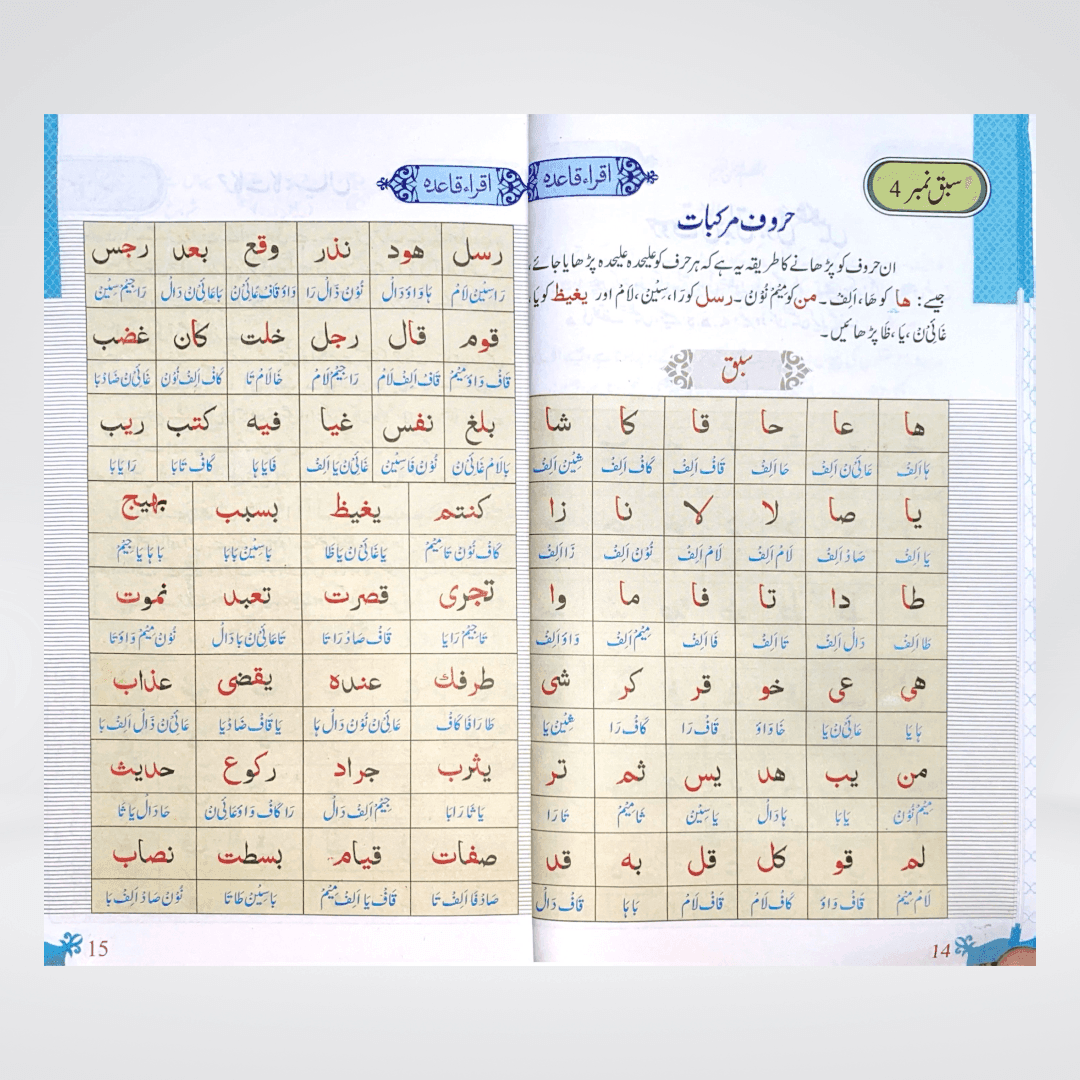 سبق نمبر 4
اقراء قاعدہ
حروف مرکبات
ان حروف کو پڑھانے کا طریقہ یہ ہے کہ ہر حرف کو علیحدہ علیحدہ پڑھایا جائے،
جیسے: ھا کو ھَا، اَلِفْ۔ من کو مِیْمْ نُوْنْ۔ رسل کو رَا، سِیْنْ، لَامْ اور یغیظ کو یَا،
غَائِنْ، یَا، ظَا پڑھائیں۔
سبق
ھا عا حا قا کا شا
ہَا اَلِفْ عَائِنْ اَلِفْ حَا اَلِفْ قَافْ اَلِفْ کَافْ اَلِفْ شِیْنْ اَلِفْ
یا صا لا لا نا زا
یَا اَلِفْ صَادْ اَلِفْ لَامْ اَلِفْ لَامْ اَلِفْ نُوْنْ اَلِفْ زَا اَلِفْ
طا دا تا فا ما وا
طَا اَلِفْ دَالْ اَلِفْ تَا اَلِفْ فَا اَلِفْ مِیْمْ اَلِفْ وَاوْ اَلِفْ
ھی عی خو قر کر شی
ہَا یَا عَائِنْ یَا خَا وَاوْ قَافْ رَا کَافْ رَا شِیْنْ یَا
من یب ھد یس ثم تر
مِیْمْ نُوْنْ یَا بَا ہَا دَالْ یَا سِیْنْ ثَا مِیْمْ تَا رَا
لم قو کل قل به قد
لَامْ مِیْمْ قَافْ وَاوْ کَافْ لَامْ قَافْ لَامْ بَا ہَا قَافْ دَالْ
14
اقراء قاعدہ
رسل هود نذر وقع بعد رجس
رَا سِیْنْ لَامْ ہَا وَاوْ دَالْ نُوْنْ ذَالْ رَا وَاوْ قَافْ عَائِنْ بَا عَائِنْ دَالْ رَا جِیْمْ سِیْنْ
قوم قال رجل خلت کان غضب
قَافْ وَاوْ مِیْمْ قَافْ اَلِفْ لَامْ رَا جِیْمْ لَامْ خَا لَامْ تَا کَافْ اَلِفْ نُوْنْ غَائِنْ ضَادْ بَا
بلغ نفس غیا فیه کتب ریب
بَا لَامْ غَائِنْ نُوْنْ فَا سِیْنْ غَائِنْ یَا اَلِفْ فَا یَا ہَا کَافْ تَا بَا رَا یَا بَا
کنتم یغیظ بسبب بهیج
کَافْ نُوْنْ تَا مِیْمْ یَا غَائِنْ یَا ظَا بَا سِیْنْ بَا بَا بَا ہَا یَا جِیْمْ
تجری قصرت تعبد نموت
تَا جِیْمْ رَا یَا قَافْ صَادْ رَا تَا تَا عَائِنْ بَا دَالْ نُوْنْ مِیْمْ وَاوْ تَا
طرفك عنده یقضی عذاب
طَا رَا فَا کَافْ عَائِنْ نُوْنْ دَالْ ہَا یَا قَافْ ضَادْ یَا عَائِنْ ذَالْ اَلِفْ بَا
یثرب جراد رکوع حدیث
یَا ثَا رَا بَا جِیْمْ اَلِفْ دَالْ رَا کَافْ وَاوْ عَائِنْ حَا دَالْ یَا ثَا
صفات قیام بسطت نصاب
صَادْ فَا اَلِفْ تَا قَافْ یَا اَلِفْ مِیْمْ بَا سِیْنْ طَا تَا نُوْنْ صَادْ اَلِفْ بَا
15